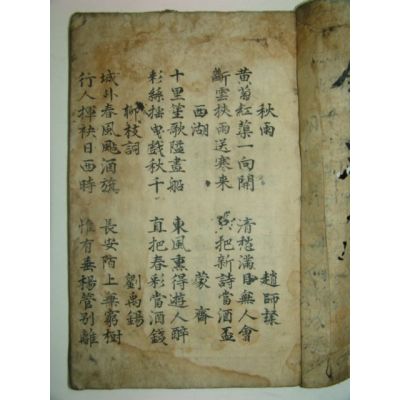 秋雨 趙師
黃菊紅葉一向開 清愁滿目無人會
斷雲挾雨送寒來 把新詩當酒盃
西湖 蒙齋
十里笙歌隘畫船 東風熏得遊人醉
彩絲搖曳戲秋千 直把春彩當酒錢
柳枝詞 劉禹錫
城外春風颭酒旗 長安陌上無窮樹
行人揮袂日西時 惟有垂楊管別離